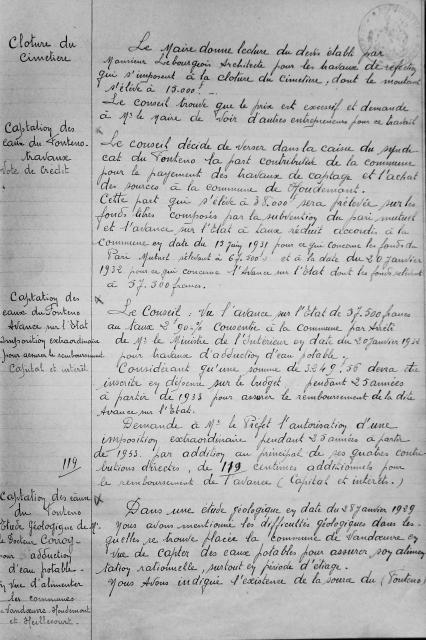 Cloture du
Cimetiere
Le Maire donne lecture du devis établi par
Monsieur Lebourgeois Architecte pour les travaux de refection
qui s'imposent à la cloture du cimetière, dont le montant
s'élève à 15.000f
Le conseil trouve que le prix est excessif et demande
à Mr le Maire de voir d'autres entrepreneurs pour ce travail
Captation des
eaux du Fonteno
travaux
Vote de crédit
Le conseil décide de verser dans la caisse du syndi-
cat du Fonteno la part contributive de la commune
pour le payement des travaux de captage et l'achat
des sources à la commune de Houdemont.
Cette part qui s'élève à 38.000f sera prélevée sur les
fonds libres composés par la subvention du pari mutuel
et l'avance sur l'Etat à taux réduit accordés à la
commune en date du 15 juin 1931 pour ce qui concerne les fonds du
Pari Mutuel s'élevant à et à la date du 20 janvier
1932 pour ce qui concerne l'Avance sur l'Etat dont les fonds s'élèvent
à 57.500 francs.
Captation des
eaux du Fonteno
Avance sur l'Etat
Imposition extraordinaire
pour assurer le remboursement
Capital et intérêt
Le Conseil : Vu l'avance sur l'Etat de 57.500 francs
au taux 2'90% Consentie à la commune par Arrêté
de Mr le Ministre de l'Intérieur en date du 20 janvier 1932
pour travaux d'adduction d'eau potable.
Considérant qu'une somme de 3249,56 devra être
inscrite en dépense sur le budget pendant 25 années
à partir de 1933 pour assurer le remboursement de la dite
Avance sur l'Etat.
Demande à Mr le Préfet l'autorisation d'une
imposition extraordinaire pendant 25 années à partir
de 1933. par addition au principal de ses quatre contri-
119
butions directes, de 119 centimes additionnels pour
le remboursement de l'avance (Capital et intérêts.)
Captation des eaux
du Fonteno
Etude Géologique de Mr
le Docteur Corroy
pour adduction
d'eau potable
en vue d'alimenter
les communes
Vandœuvre-Houdemont
et Heillecourt.
Dans une étude géologique en date du 28 janvier 1929
nous avons mentionné les difficultés géologiques dans les-
quelles se trouve placée la commune de Vandœuvre en
vue de capter des eaux potables pour assurer son alimen-
tation rationnelle, surtout en période d'étiage.
Nous Avons indiqué l'existence de la source du (Fonteno)